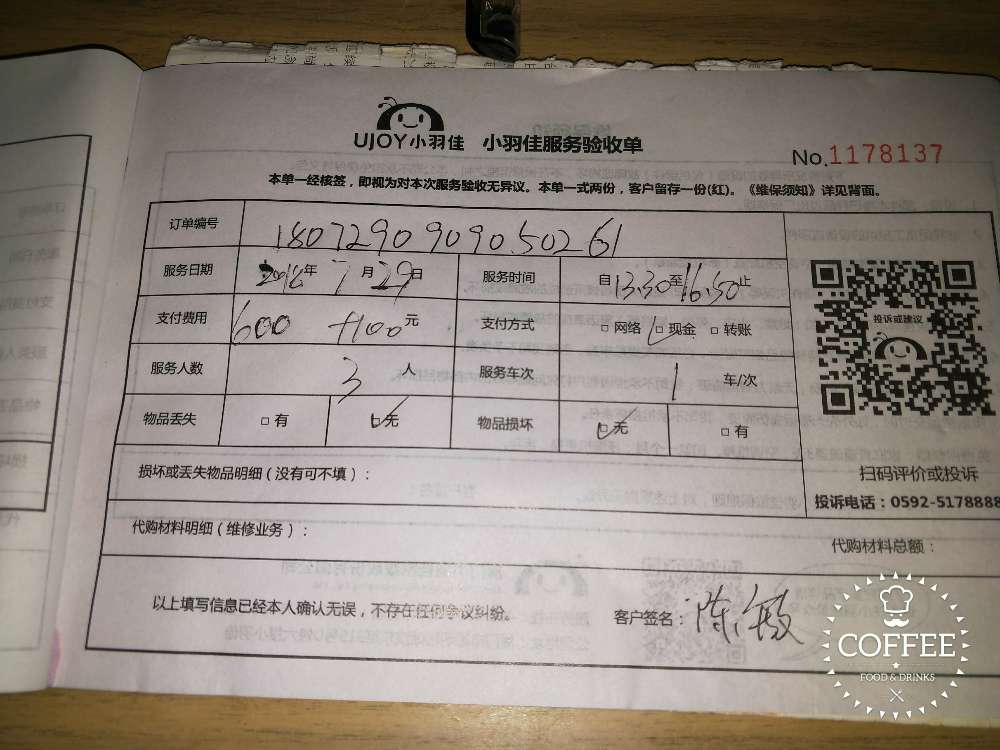 UJOY小羽佳 小羽佳服务验收单
No.1178137
本单一经核签，即视为对本次服务验收无异议。本单一式两份，客户留存一份(红)。《维保须知》详见背面。
订单编号 1807290909050261
服务日期 2018年 7月29日 服务时间 自13.30至16.50止
支付费用 600 +100元 支付方式 □网络 □现金 □转账
服务人数 3 人 服务车次 1 车/次
物品丢失 □有 □无 物品损坏 □无 □有
投诉或建议
损坏或丢失物品明细（没有可不填）：
扫码评价或投诉
投诉电话：0592-5178888
代购材料明细（维修业务）：
代购材料总额：
以上填写信息已经本人确认无误，不存在任何争议纠纷。
客户签名：陈敏
COFFEE
FOOD & DRINKS